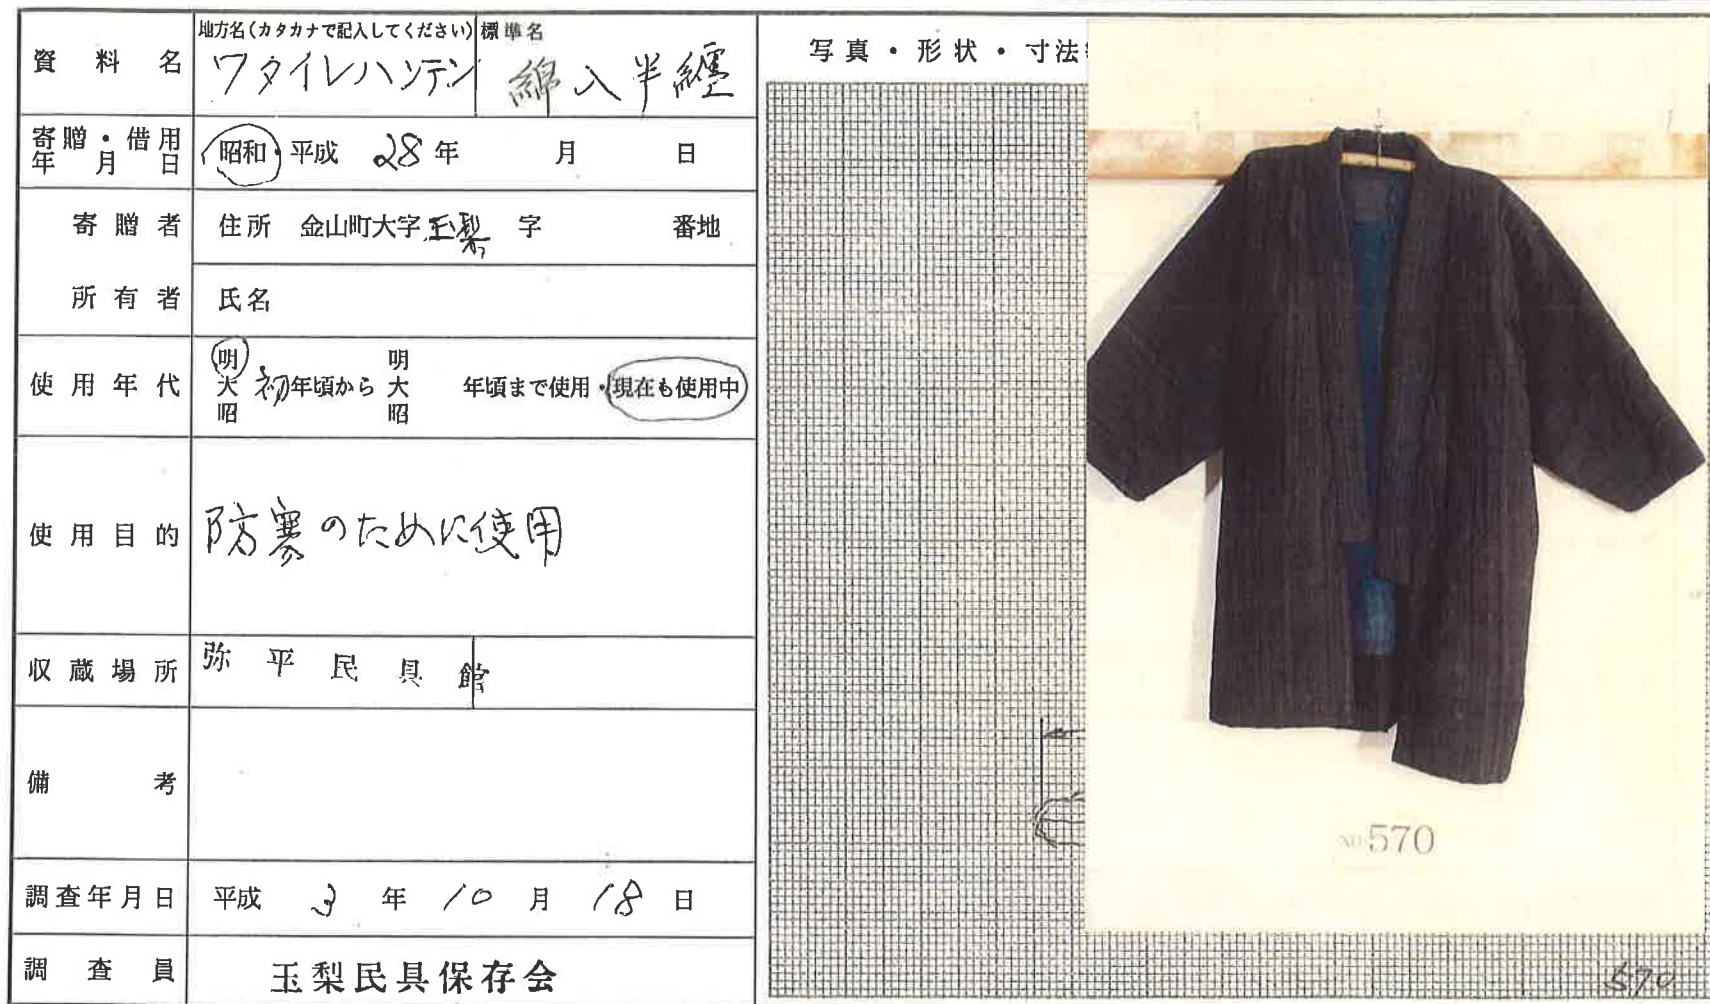 資料名
地方名(カタカナで記入してください)
ワタイレハンテン
標準名
綿入半纏
寄贈・借用
年月日
昭和・平成 28年 月 日
寄贈者
住所 金山町大字玉梨 字 番地
所有者
氏名
使用年代
明
大
昭
初年頃から
明
大
昭
年頃まで使用・現在も使用中
使用目的
防寒のために使用
収蔵場所
弥平民具館
備考
調査年月日
平成 3年 10月 18日
調査員
玉梨民具保存会
写真・形状・寸法
NO 570
570